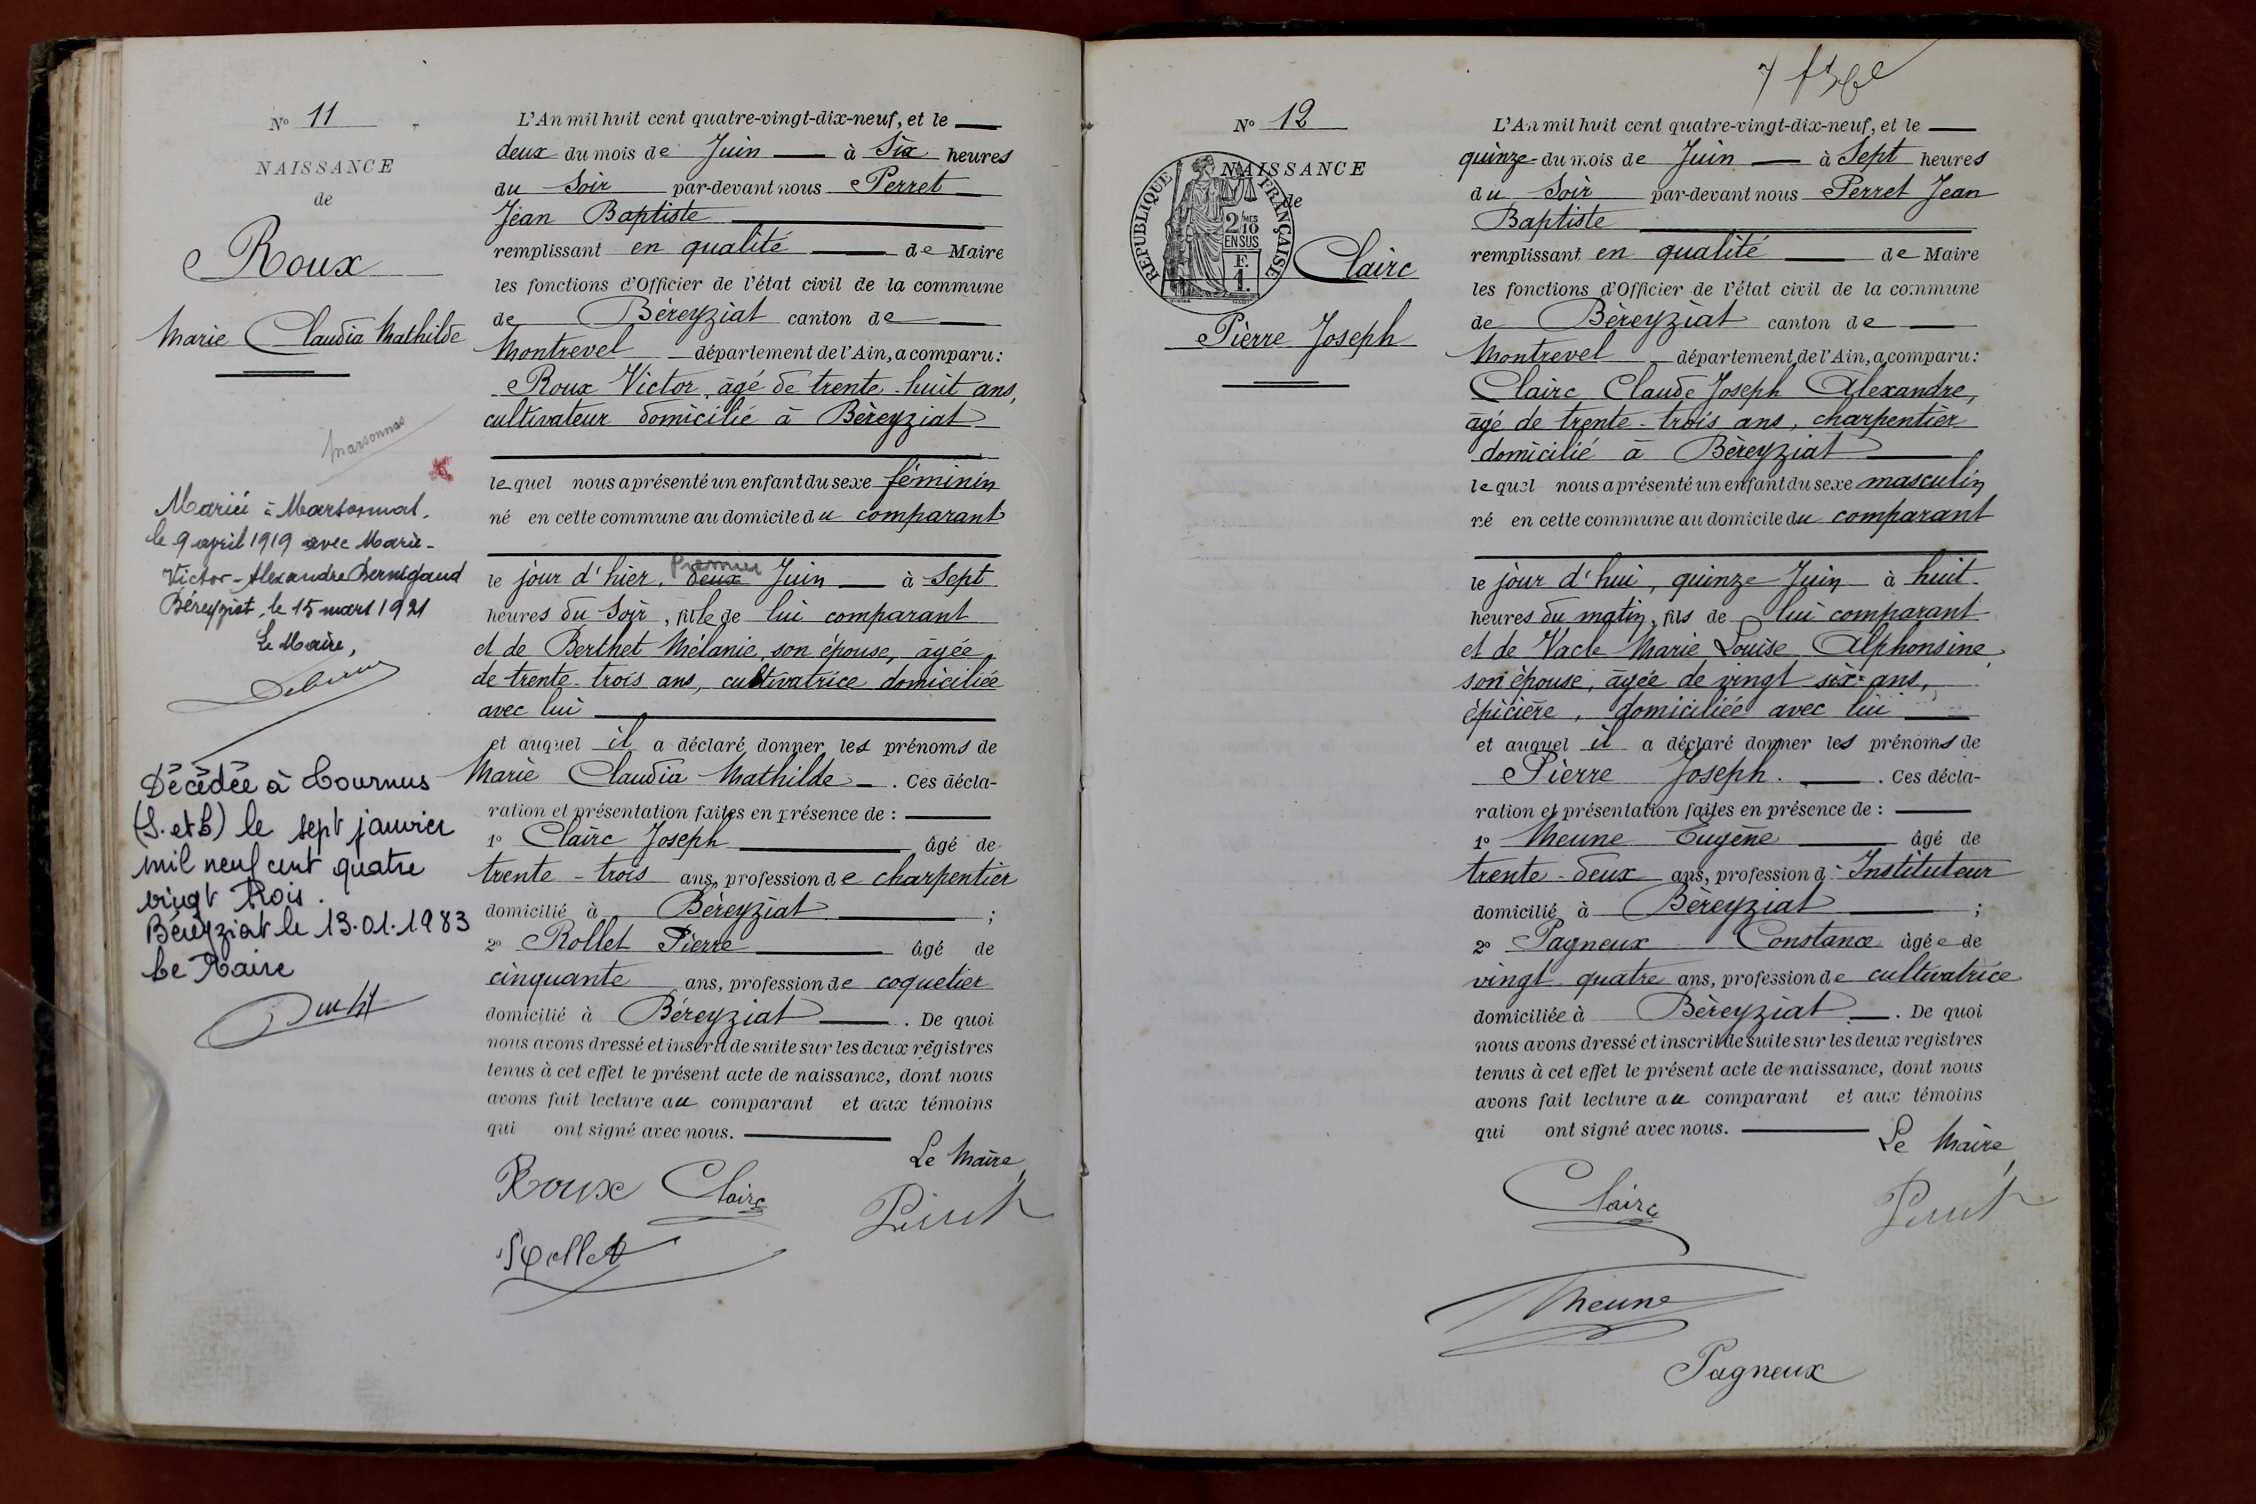 N° 11
NAISSANCE
de
Roux
Marie Claudia Mathilde
Marsonnas
Mariée à Marsonnas
le 9 april 1919 avec Marie-
Victor-Alexandre Bernigaud
Béreyziat, le 15 mars 1921
Le Maire,
Décédée à Tournus
(S. et L) le sept janvier
mil neuf cent quatre
vingt trois.
Béreyziat le 13.01.1983
Le Maire
L'An mil huit cent quatre-vingt-dix-neuf, et le
deux du mois de Juin à Six heures
du Soir par-devant nous Perret
Jean Baptiste
remplissant en qualité de Maire
les fonctions d'Officier de l'état civil de la commune
de Béreyziat canton de
Montrevel département de l'Ain, a comparu :
Roux Victor, âgé de trente-huit ans,
cultivateur domicilié à Béreyziat
lequel nous a présenté un enfant du sexe féminin
né en cette commune au domicile du comparant
Premier
le jour d'hier, deux Juin à Sept
heures du Soir, fille de lui comparant
et de Berthet Mélanie, son épouse, âgée
de trente-trois ans, cultivatrice domiciliée
avec lui
et auquel il a déclaré donner les prénoms de
Marie Claudia Mathilde. Ces décla-
ration et présentation faites en présence de :
1° Clairc Joseph âgé de
trente-trois ans, profession de charpentier
domicilié à Béreyziat ;
2° Rollet Pierre âgé de
cinquante ans, profession de coquetier
domicilié à Béreyziat. De quoi
nous avons dressé et inscrit de suite sur les deux registres
tenus à cet effet le présent acte de naissance, dont nous
avons fait lecture au comparant et aux témoins
qui ont signé avec nous.
Le Maire,
Roux Clairc Perret
Rollet
N° 12
NAISSANCE
de
REPUBLIQUE FRANÇAISE
2/10MES
EN SUS
F.
1.
Clairc
Pierre Joseph
L'An mil huit cent quatre-vingt-dix-neuf, et le
quinze du mois de Juin à Sept heures
du Soir par-devant nous Perret Jean
Baptiste
remplissant en qualité de Maire
les fonctions d'Officier de l'état civil de la commune
de Béreyziat canton de
Montrevel département de l'Ain, a comparu :
Clairc Claude Joseph Alexandre,
âgé de trente-trois ans, charpentier
domicilié à Béreyziat
lequel nous a présenté un enfant du sexe masculin
né en cette commune au domicile du comparant
le jour d'hui, quinze Juin à huit
heures du matin, fils de lui comparant
et de Vacle Marie Louise Alphonsine
son épouse, âgée de vingt six ans,
épicière, domiciliée avec lui
et auquel il a déclaré donner les prénoms de
Pierre Joseph. Ces décla-
ration et présentation faites en présence de :
1° Meune Eugène âgé de
trente-deux ans, profession d' Instituteur
domicilié à Béreyziat ;
2° Pagneux Constance âgée de
vingt quatre ans, profession de cultivatrice
domiciliée à Béreyziat. De quoi
nous avons dressé et inscrit de suite sur les deux registres
tenus à cet effet le présent acte de naissance, dont nous
avons fait lecture au comparant et aux témoins
qui ont signé avec nous.
Le Maire,
Clairc Perret
Meune
Pagneux